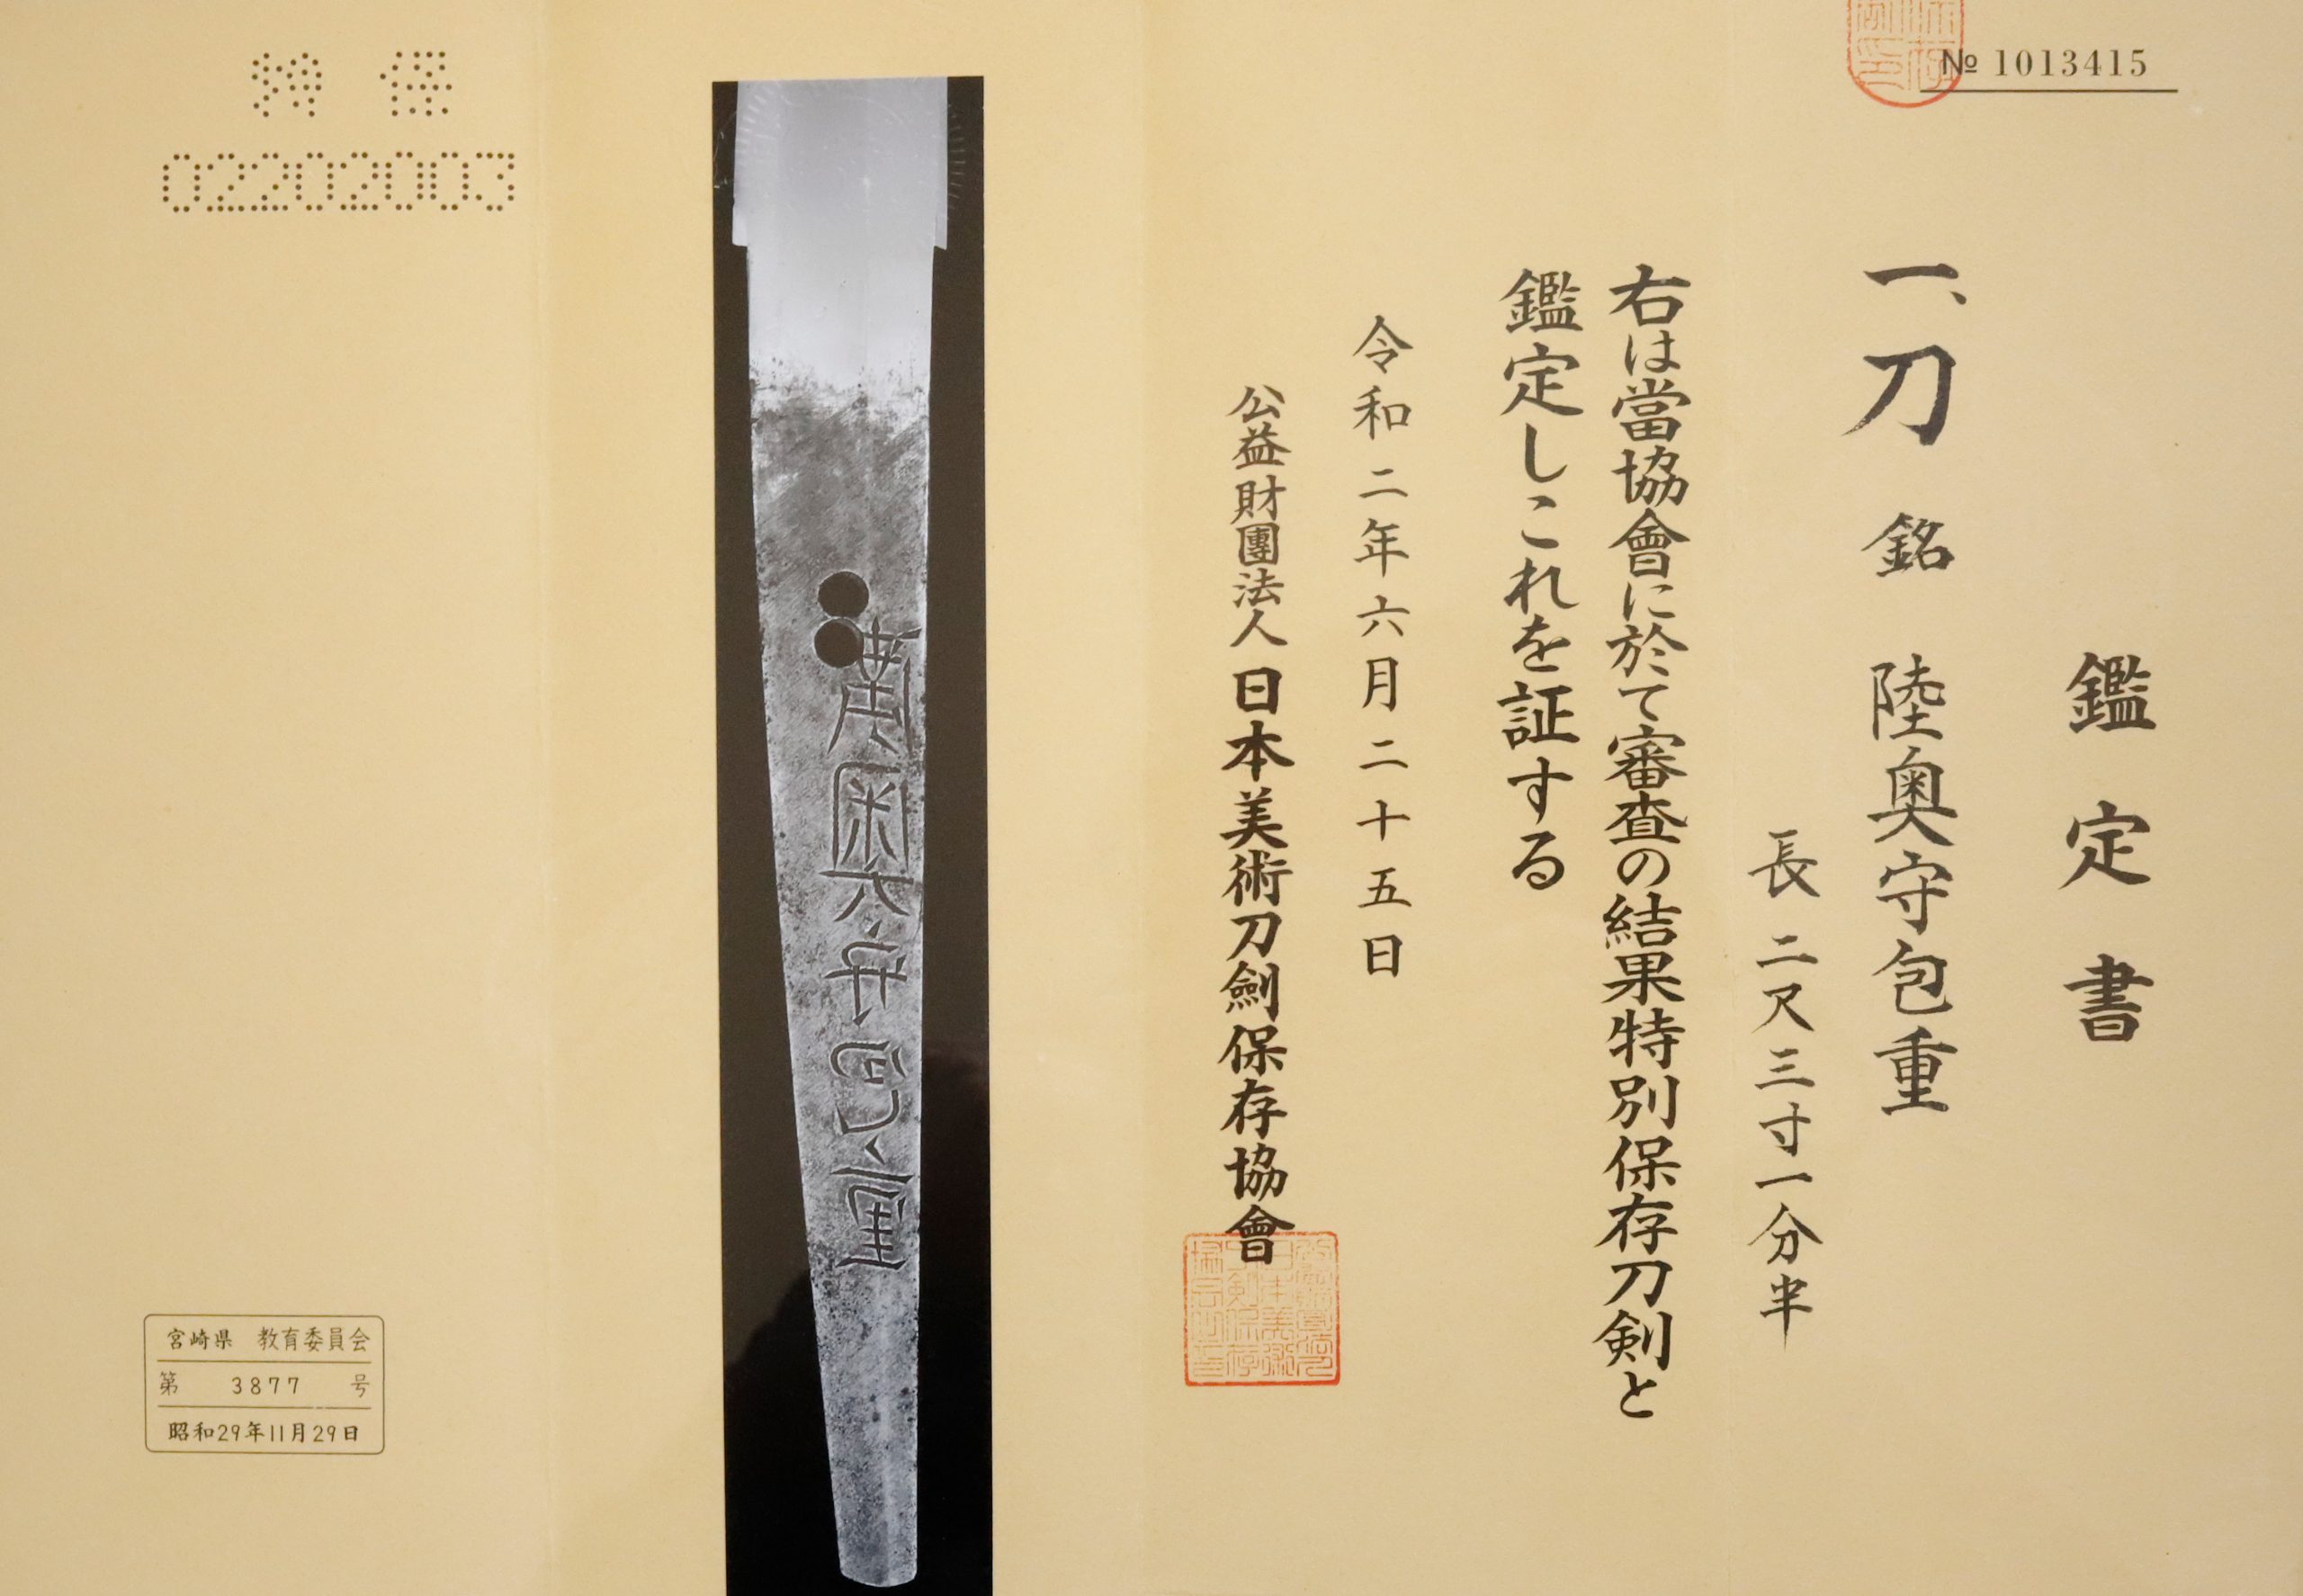 № 1013415
鑑定書
一、刀 銘 陸奥守包重
長二尺三寸一分半
右は當協會に於て審査の結果特別保存刀剣と
鑑定しこれを証する
令和二年六月二十五日
公益財團法人日本美術刀劍保存協會
陸奥守包重
特保
02202003
宮崎県 教育委員会
第 3877 号
昭和29年11月29日